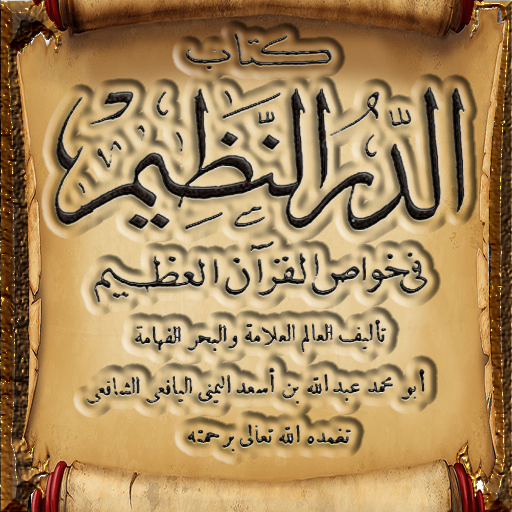 كتاب
الدر النظيم
في خواص القرآن العظيم
تأليف العالم العلامة والبحر الفهامة
أبو محمد عبد الله بن أسعد اليمني اليافعي الشافعي
تغمده الله تعالى برحمته